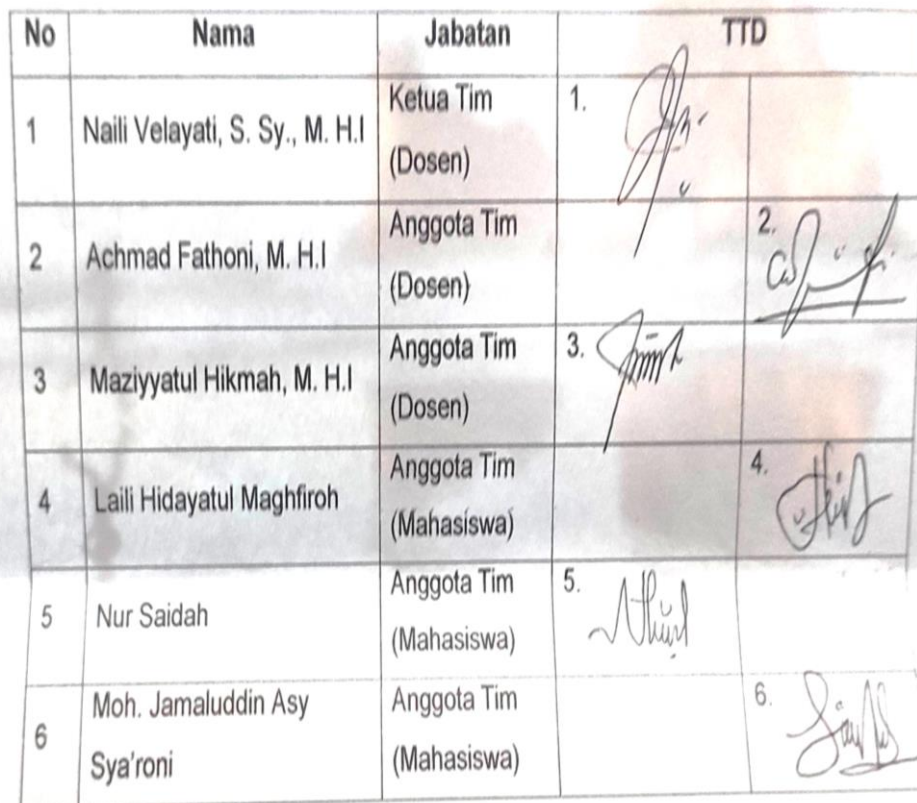 No Nama Jabatan TTD
1 Naili Velayati, S. Sy., M. H.I Ketua Tim 1.
(Dosen)
2 Achmad Fathoni, M. H.I Anggota Tim 2.
(Dosen)
3 Maziyyatul Hikmah, M. H.I Anggota Tim 3.
(Dosen)
4 Laili Hidayatul Maghfiroh Anggota Tim 4.
(Mahasiswa)
5 Nur Saidah Anggota Tim 5.
(Mahasiswa)
6 Moh. Jamaluddin Asy Anggota Tim 6.
Sya'roni (Mahasiswa)